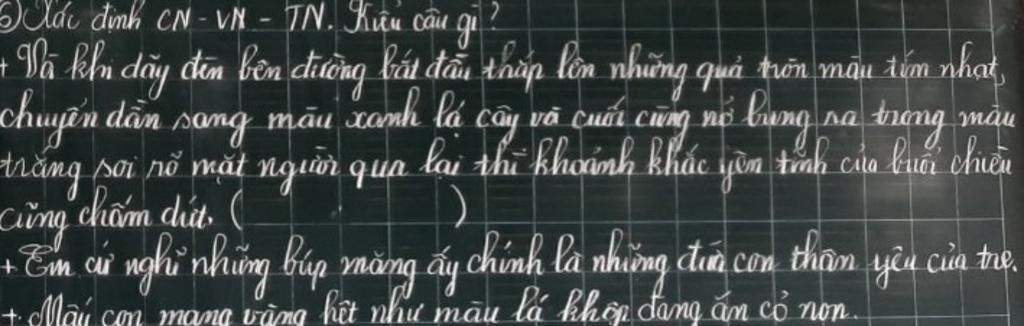 6) Xác định CN - VN - TN. Kiểu câu gì?
+ Và khi dãy đèn bên đường bắt đầu thắp lên những quả tròn màu tím nhạt,
chuyển dần sang màu xanh lá cây và cuối cùng nở bung ra trong màu
trắng soi rõ mặt người qua lại thì khoảnh khắc yên tĩnh của buổi chiều
cũng chấm dứt. ( )
+ Em cứ nghĩ những búp măng ấy chính là những đứa con thân yêu của tre.
+ Mấy con mang vàng hệt như màu lá khộp đang ăn cỏ non.